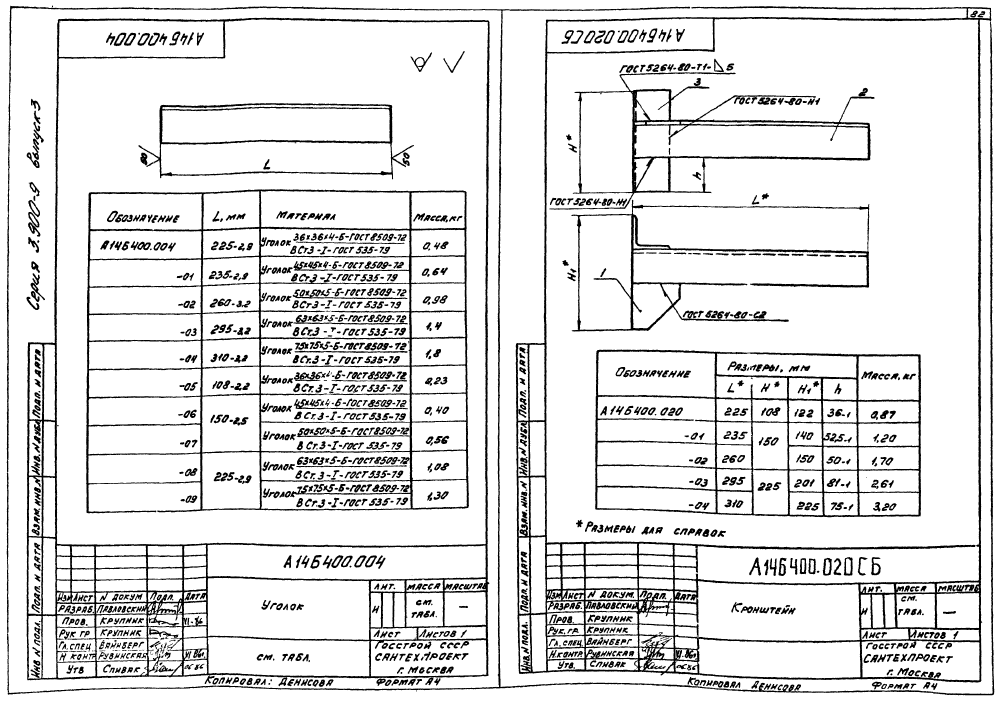 82
Серия 3.900-9 выпуск 3
А14Б400.004
L
50
Обозначение L, мм Материал Масса, кг
А14Б400.004 225-2,9 Уголок 36×36×4-Б-ГОСТ 8509-72 / ВСт.3-I-ГОСТ 535-79 0,48
-01 235-2,9 Уголок 45×45×4-Б-ГОСТ 8509-72 / ВСт.3-I-ГОСТ 535-79 0,64
-02 260-3,2 Уголок 50×50×5-Б-ГОСТ 8509-72 / ВСт.3-I-ГОСТ 535-79 0,98
-03 295-3,2 Уголок 63×63×5-Б-ГОСТ 8509-72 / ВСт.3-I-ГОСТ 535-79 1,4
-04 310-3,2 Уголок 75×75×5-Б-ГОСТ 8509-72 / ВСт.3-I-ГОСТ 535-79 1,8
-05 108-2,2 Уголок 36×36×4-Б-ГОСТ 8509-72 / ВСт.3-I-ГОСТ 535-79 0,23
-06 150-2,5 Уголок 45×45×4-Б-ГОСТ 8509-72 / ВСт.3-I-ГОСТ 535-79 0,40
-07 Уголок 50×50×5-Б-ГОСТ 8509-72 / ВСт.3-I-ГОСТ 535-79 0,56
-08 225-2,9 Уголок 63×63×5-Б-ГОСТ 8509-72 / ВСт.3-I-ГОСТ 535-79 1,08
-09 Уголок 75×75×5-Б-ГОСТ 8509-72 / ВСт.3-I-ГОСТ 535-79 1,30
Инв. N подл. Подп. и дата Взам. инв. N Инв. N дубл. Подп. и дата
А14Б400.004
Изм Лист N докум. Подп. Дата
Разраб. Павловский
Пров. Крупник
Рук. гр Крупник
Гл. спец Вайнберг
Н. контр Рувинская
Утв Спивак
Уголок
см. табл.
Лит. Масса Масштаб
И см. табл. —
Лист Листов 1
Госстрой СССР
Сантехпроект
г. Москва
Копировал: Денисова Формат А4
А14Б400.020СБ
ГОСТ 5264-80-Т1-5
3
ГОСТ 5264-80-Н1
2
H*
h
ГОСТ 5264-80-Н1
L*
H1*
1
ГОСТ 5264-80-С2
Обозначение Размеры, мм Масса, кг
L* H* H1* h
А14Б400.020 225 108 122 36-1 0,87
-01 235 150 140 52,5-1 1,20
-02 260 150 50-1 1,70
-03 295 225 201 81-1 2,61
-04 310 225 75-1 3,20
* Размеры для справок
Инв. N подл. Подп. и дата Взам. инв. N Инв. N дубл. Подп. и дата
А14Б400.020СБ
Изм Лист N докум. Подп. Дата
Разраб. Павловский
Пров. Крупник
Рук. гр. Крупник
Гл. спец. Вайнберг
Н. контр Рувинская
Утв. Спивак
Кронштейн
Лит. Масса Масштаб
И см. табл. —
Лист Листов 1
Госстрой СССР
Сантехпроект
г. Москва
Копировал Денисова Формат А4